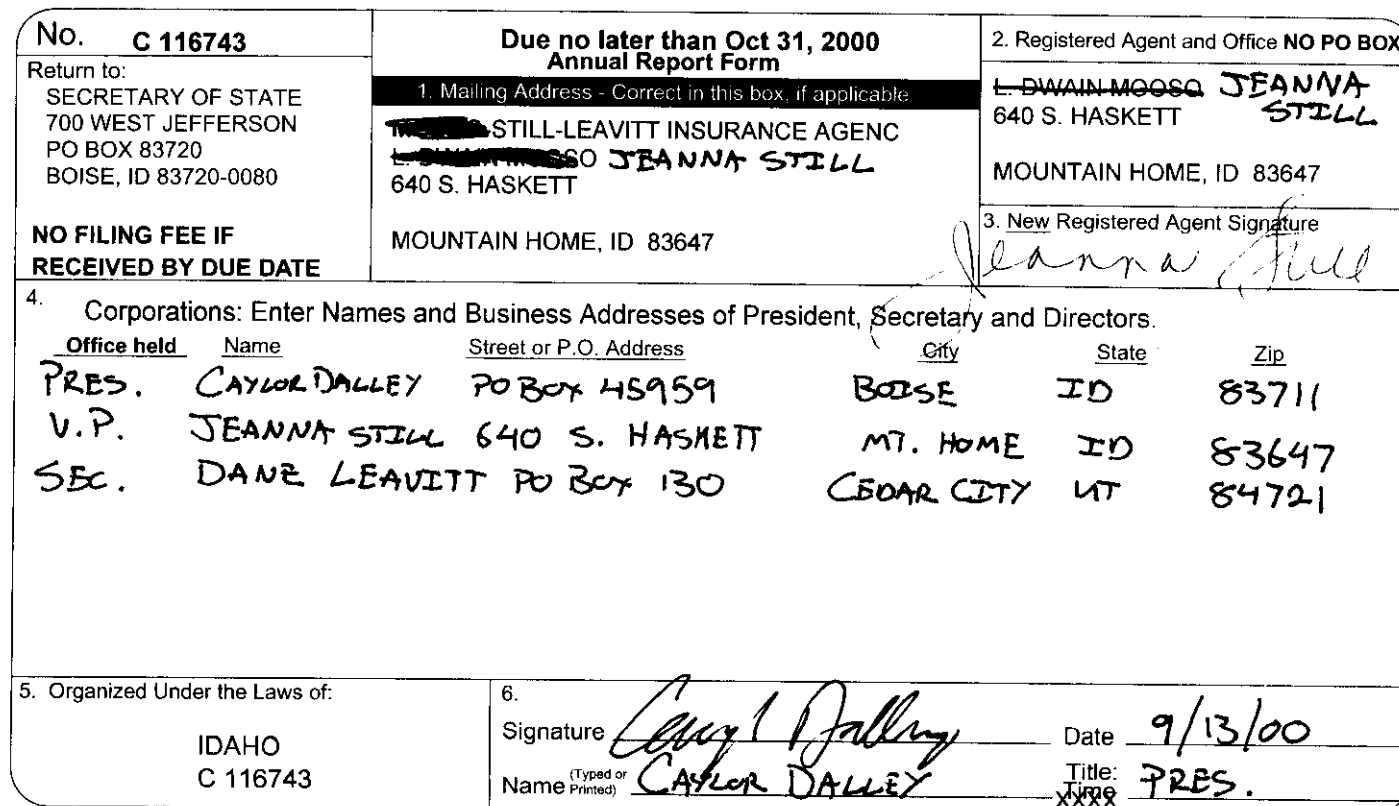 No. C 116743
Return to:
SECRETARY OF STATE
700 WEST JEFFERSON
PO BOX 83720
BOISE, ID 83720-0080
NO FILING FEE IF
RECEIVED BY DUE DATE
Due no later than Oct 31, 2000
Annual Report Form
1. Mailing Address - Correct in this box, if applicable
STILL-LEAVITT INSURANCE AGENC
JEANNA STILL
640 S. HASKETT
MOUNTAIN HOME, ID 83647
2. Registered Agent and Office NO PO BOX
L. DWAIN MOOSO JEANNA
640 S. HASKETT STILL
MOUNTAIN HOME, ID 83647
3. New Registered Agent Signature
Jeanna Still
4.
Corporations: Enter Names and Business Addresses of President, Secretary and Directors.
Office held Name Street or P.O. Address City State Zip
PRES. CAYLOR DALLEY PO BOX 45959 BOISE ID 83711
V.P. JEANNA STILL 640 S. HASKETT MT. HOME ID 83647
SEC. DANE LEAVITT PO BOX 130 CEDAR CITY UT 84721
5. Organized Under the Laws of:
IDAHO
C 116743
6.
Signature Date 9/13/00
Name (Typed or Printed) CAYLOR DALLEY Title: PRES.
Time
XXXX